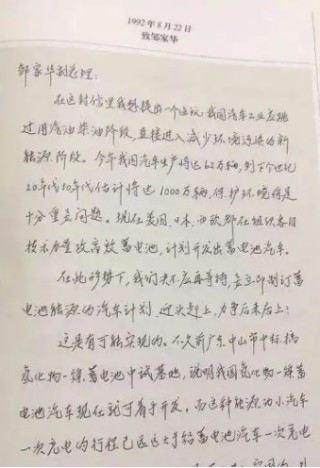 1992年8月22日
致邹家华
邹家华副总理：
在这封信里我想提出一个建议：我国汽车工业应跳
过用汽油柴油阶段，直接进入减少环境污染的新
能源阶段。今年我国汽车生产将达62万辆，到下个世纪
20年代30年代估计将达1000万辆，保护环境将是
十分重要问题。现在美国、日本、西欧都在组织各自
技术力量攻高效蓄电池，计划开发出蓄电池汽车。
在此形势下，我们决不应再等待，要立即制订蓄
电池能源的汽车计划，迎头赶上，力争后来居上！
这是有可能实现的。不久前广东中山市中标搞
氢化物-镍蓄电池中试基地，说明我国氢化物-镍蓄
电池汽车现在就可着手开发。而这种能源为小汽车
一次充电的行程已远远大于铅蓄电池汽车一次充电